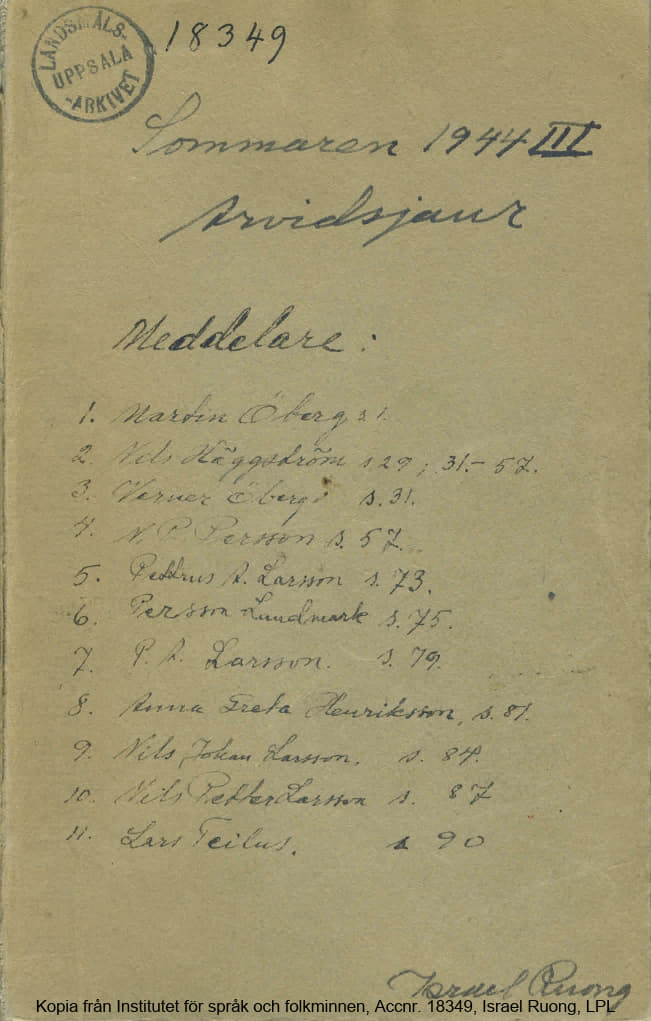 LANDSMÅLS-
UPPSALA
-ARKIVET
18349
Sommaren 1944 III
Arvidsjaur
Meddelare:
1. Martin Öberg s 1.
2. Nils Häggström s 29; 31.- 57.
3. Verner Öberg s. 31.
4. N. P. Persson s. 57.
5. Pettrus A. Larsson s. 73.
6. Persson Lundmark s. 75.
7. P. A. Larsson. s. 79.
8. Anna Greta Henriksson, s. 81.
9. Nils Johan Larsson. s. 84.
10. Nils Petter Larsson s. 87
11. Lars Teilus. s 90
Israel Ruong
Kopia från Institutet för språk och folkminnen, Accnr. 18349, Israel Ruong, LPL